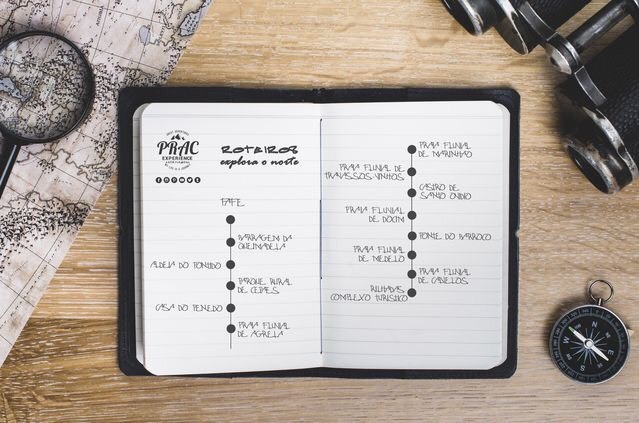 PRAC
EXPERIENCE
ROTEIROS
explora o norte
FAFE
BARRAGEM DA
QUEIMADELA
ALDEIA DO PONTIDO
PARQUE RURAL
DE CEPAES
CASA DO PENEDO
PRAIA FLUVIAL
DE AGRELA
PRAIA FLUVIAL
DE MARINHAO
PRAIA FLUVIAL DE
TRAVASSOS-VINHOS
CASTRO DE
SANTO OVIDIO
PRAIA FLUVIAL
DE DOCIM
PONTE DO BARROCO
PRAIA FLUVIAL
DE MEDELO
PRAIA FLUVIAL
DE CALVELOS
RILHADAS
COMPLEXO TURISTICO
N
E
S
W